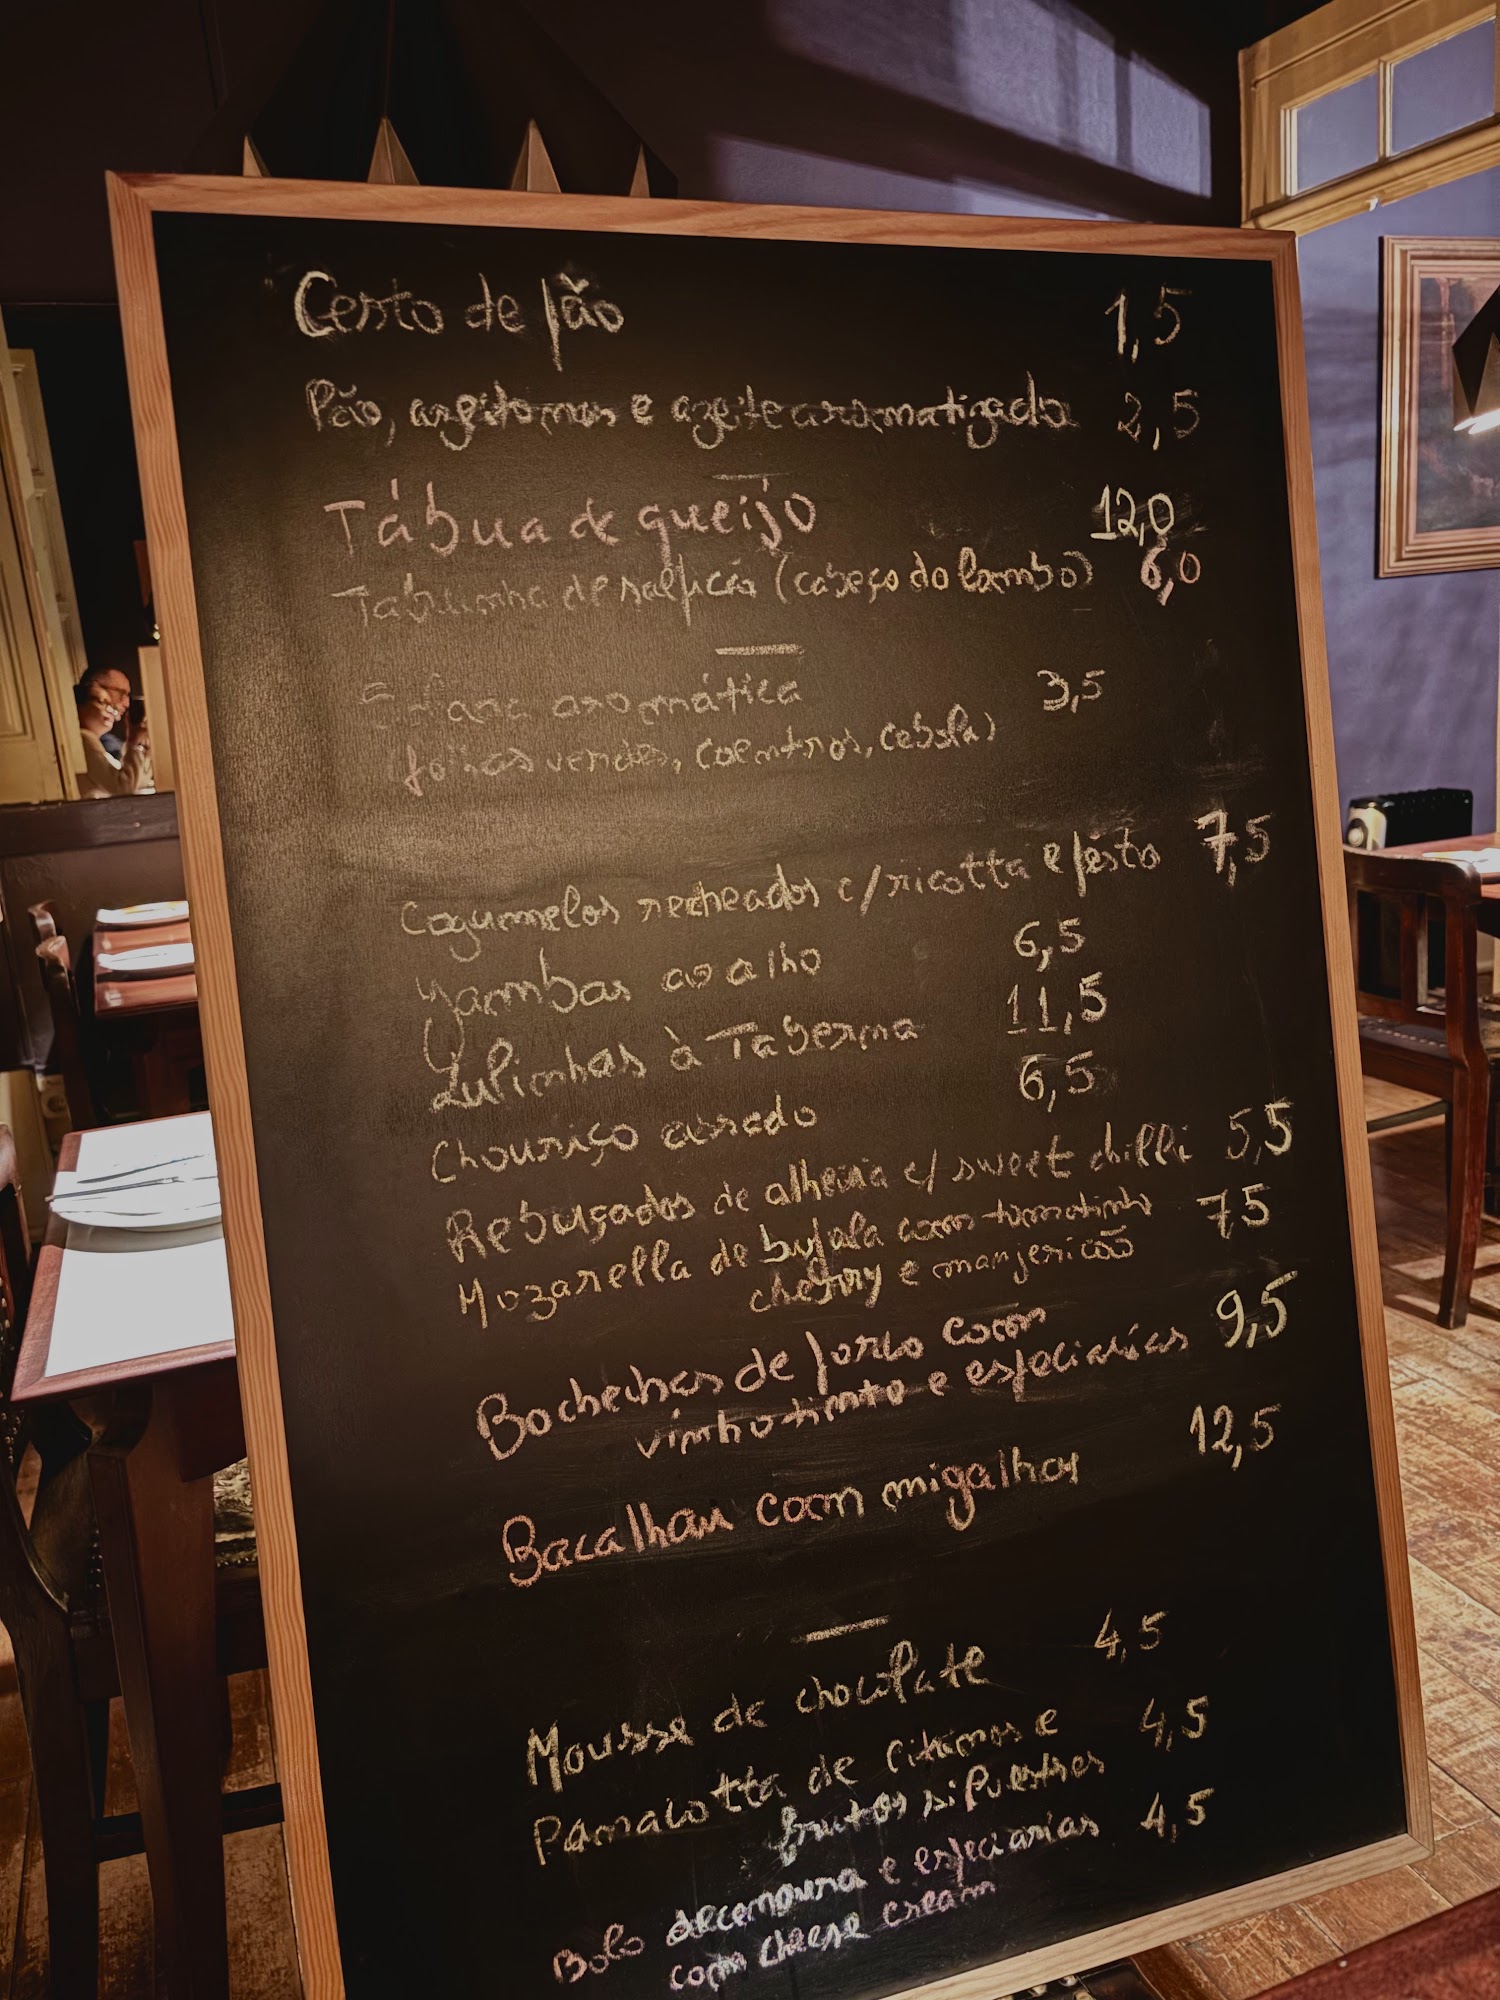 Cesto de pão 1,5
Pão, azeitonas e azeite aromatizado 2,5
Tábua de queijo 12,0
Tabuinha de salpicão (cabeço do lombo) 6,0
aromática 3,5
folhas verdes, coentros, cebola)
Cogumelos recheados c/ ricotta e pesto 7,5
Gambas ao alho 6,5
Lulinhas à Taberna 11,5
Chouriço assado 6,5
Rebuçados de alheira c/ sweet chilli 5,5
Mozarella de bufala com tomatinho 7,5
cherry e manjericão
Bochechas de porco com 9,5
vinho tinto e especiarias
Bacalhau com migalhos 12,5
Mousse de chocolate 4,5
Panacotta de citrinos e 4,5
frutos silvestres
Bolo de cenoura e especiarias 4,5
com cheese cream